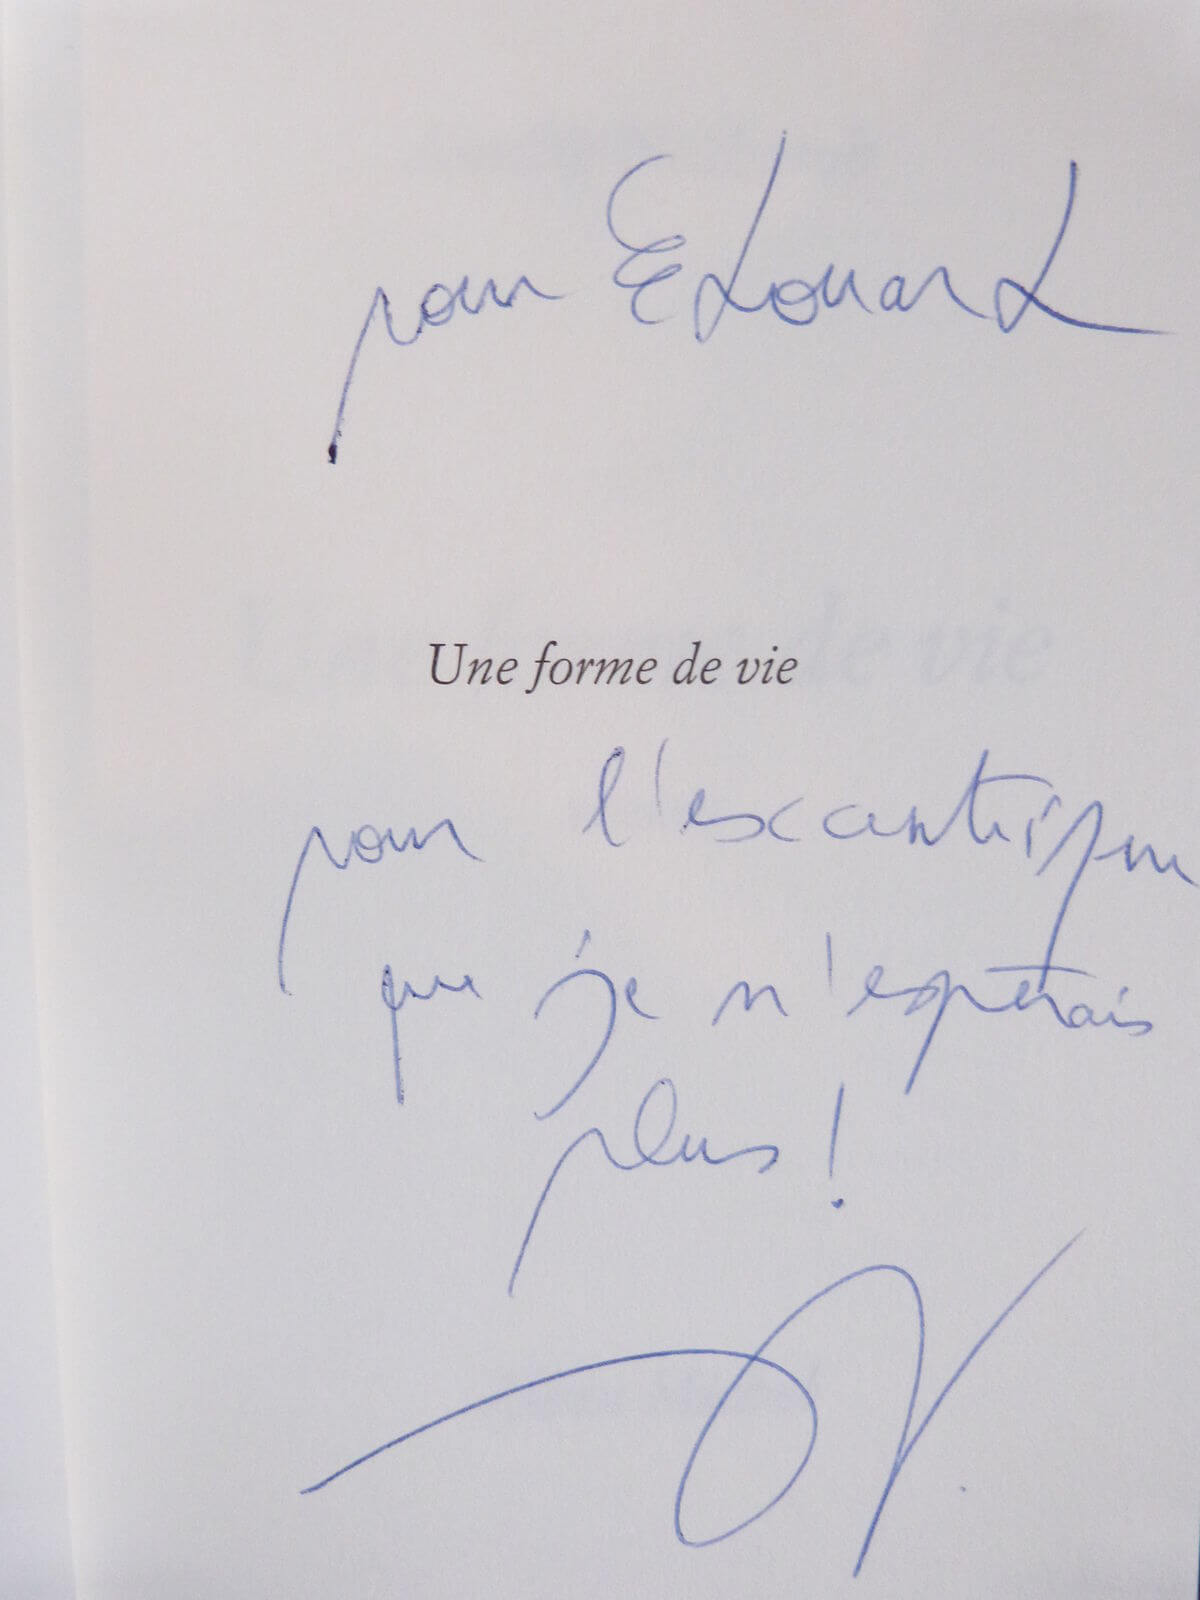 pour Edouard
Une forme de vie
pour
que je n'espérais
plus !